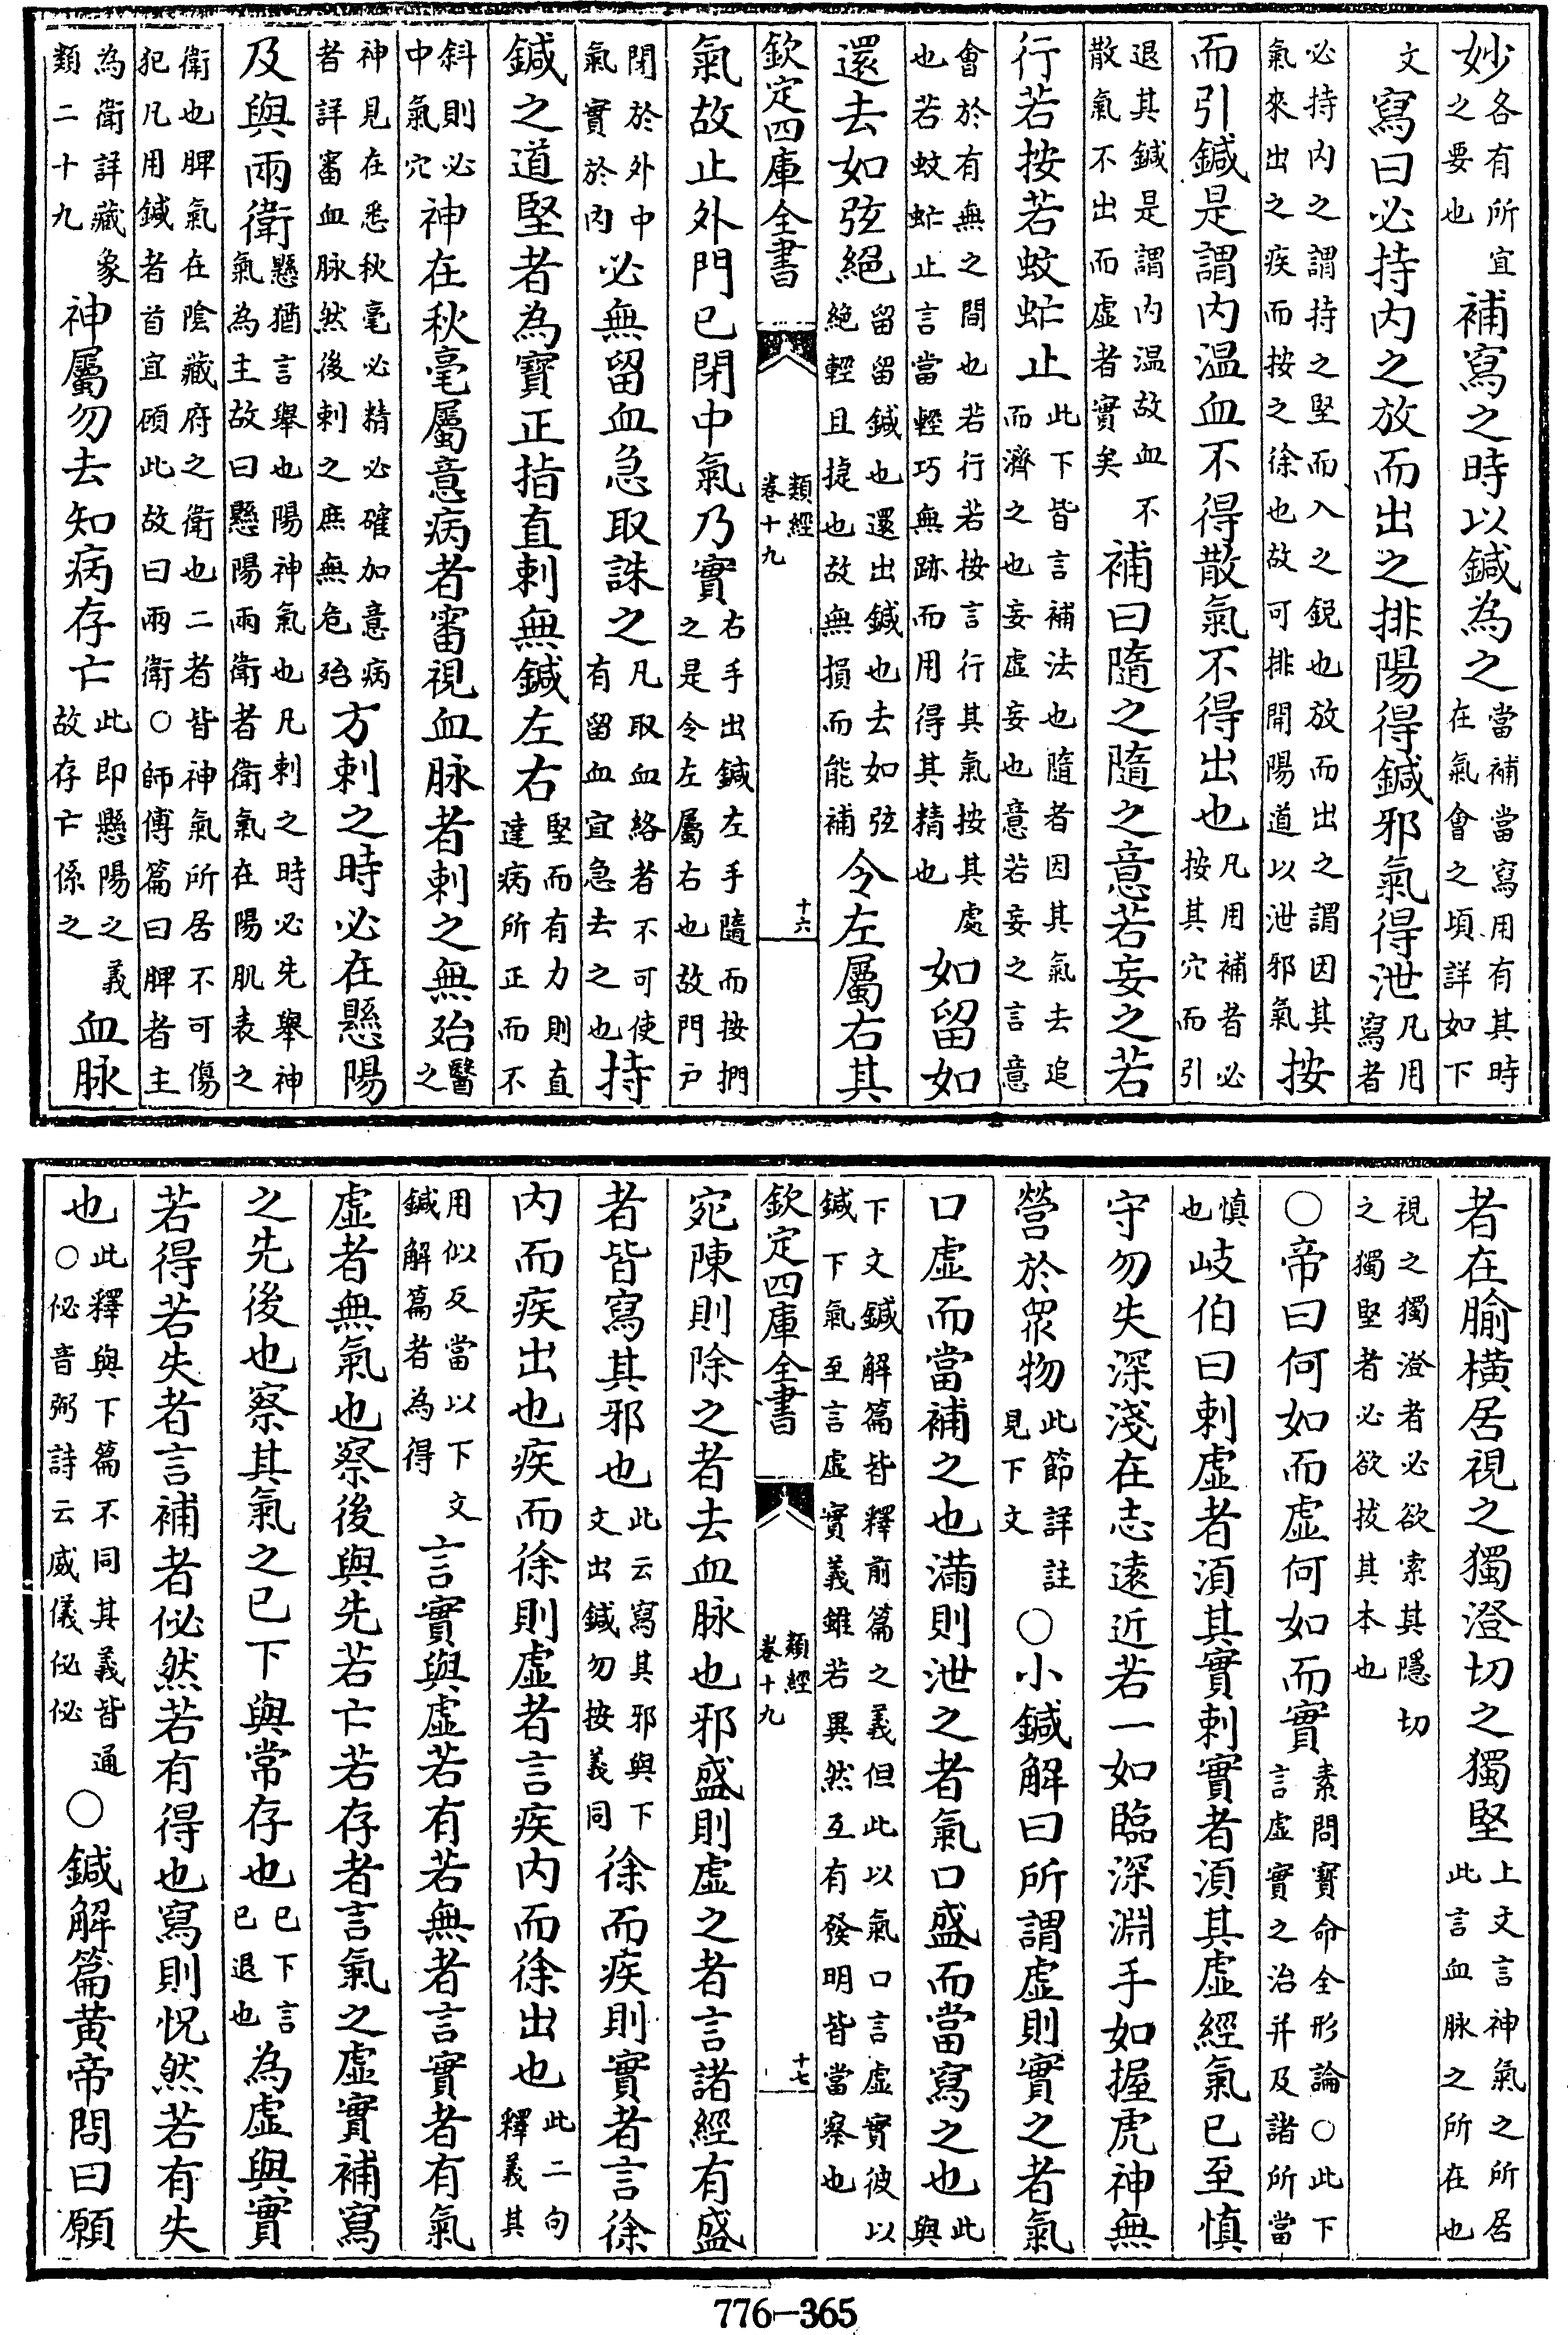 妙各有所宜之要也補寫之時以鍼為之當補當寫用有其時在氣會之頃詳如下
文寫曰必持内之放而出之排陽得鍼邪氣得泄凡用寫者
必持内之謂持之堅而入之銳也放而出之謂因其氣來出之疾而按之徐也故可排開陽道以泄邪氣按
而引鍼是謂内温血不得散氣不得出也凡用補者必按其穴而引
退其鍼是謂内温故血不散氣不出而虚者實矣補曰隨之隨之意若妄之若
行若按若蚊虻止此下皆言補法也隨者因其氣去追而濟之也妄虚妄也意若妄之言意
會於有無之間也若行若按言行其氣按其處也若蚊虻止言當輕巧無跡而用得其精也如留如
還去如弦絕留留鍼也還出鍼也去如弦絶輕且捷也故無損而能補令左屬右其
欽定四庫全書 類經卷十九 十六
氣故止外門已閉中氣乃實右手出鍼左手隨而按捫之是令左屬右也故門戸
閉於外中氣實於内必無留血急取誅之凡取血絡者不可使有留血宜急去之也持
鍼之道堅者為寶正指直刺無鍼左右堅而有力則直達病所正而不
斜則必中氣穴神在秋毫屬意病者審視血脉者刺之無殆醫之
神見在悉秋毫必精必確加意病者詳審血脉然後刺之庶無危殆方刺之時必在懸陽
及與兩衛懸猶言舉也陽神氣也凡刺之時必先舉神氣為主故曰懸陽兩衛者衛氣在陽肌表之
衛也脾氣在陰藏府之衛也二者皆神氣所居不可傷犯凡用鍼者首宜顧此故曰兩衛○師傳篇曰脾者主
為衛詳藏象類二十九神屬勿去知病存亡此即懸陽之義故存亡係之血脉
者在腧橫居視之獨澄切之獨堅上文言神氣之所居此言血脉之所在也
視之獨澄者必欲索其隱切之獨堅者必欲拔其本也
○帝曰何如而虚何如而實素問寶命全形論○此下言虚實之治并及諸所當
慎也岐伯曰刺虚者須其實刺實者須其虚經氣已至慎
守勿失深淺在志遠近若一如臨深淵手如握虎神無
營於衆物此節詳註見下文○小鍼解曰所謂虚則實之者氣
口虚而當補之也滿則泄之者氣口盛而當寫之也此與
下文鍼解篇皆釋前篇之義但此以氣口言虚實彼以鍼下氣至言虚實義雖若異然互有發明皆當察也
欽定四庫全書 類經卷十九 十七
宛陳則除之者去血脉也邪盛則虚之者言諸經有盛
者皆寫其邪也此云寫其邪與下文出鍼勿按義同徐而疾則實者言徐
内而疾出也疾而徐則虚者言疾内而徐出也此二句釋義其
用似反當以下文鍼解篇者為得言實與虚若有若無者言實者有氣
虚者無氣也察後與先若亡若存者言氣之虚實補寫
之先後也察其氣之已下與常存也已下言已退也為虚與實
若得若失者言補者佖然若有得也寫則怳然若有失
也此釋與下篇不同其義皆通○佖音弼詩云威儀佖佖○鍼解篇黄帝問曰願
776—365